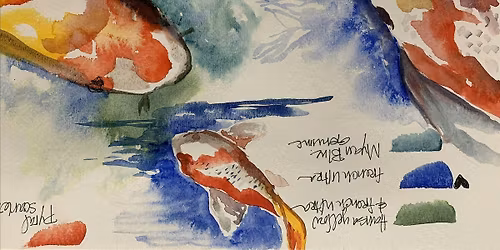 Hansa yellow
& french ultra
french ultra
Mayan Blue
Genuine
Pyrol
scarlet